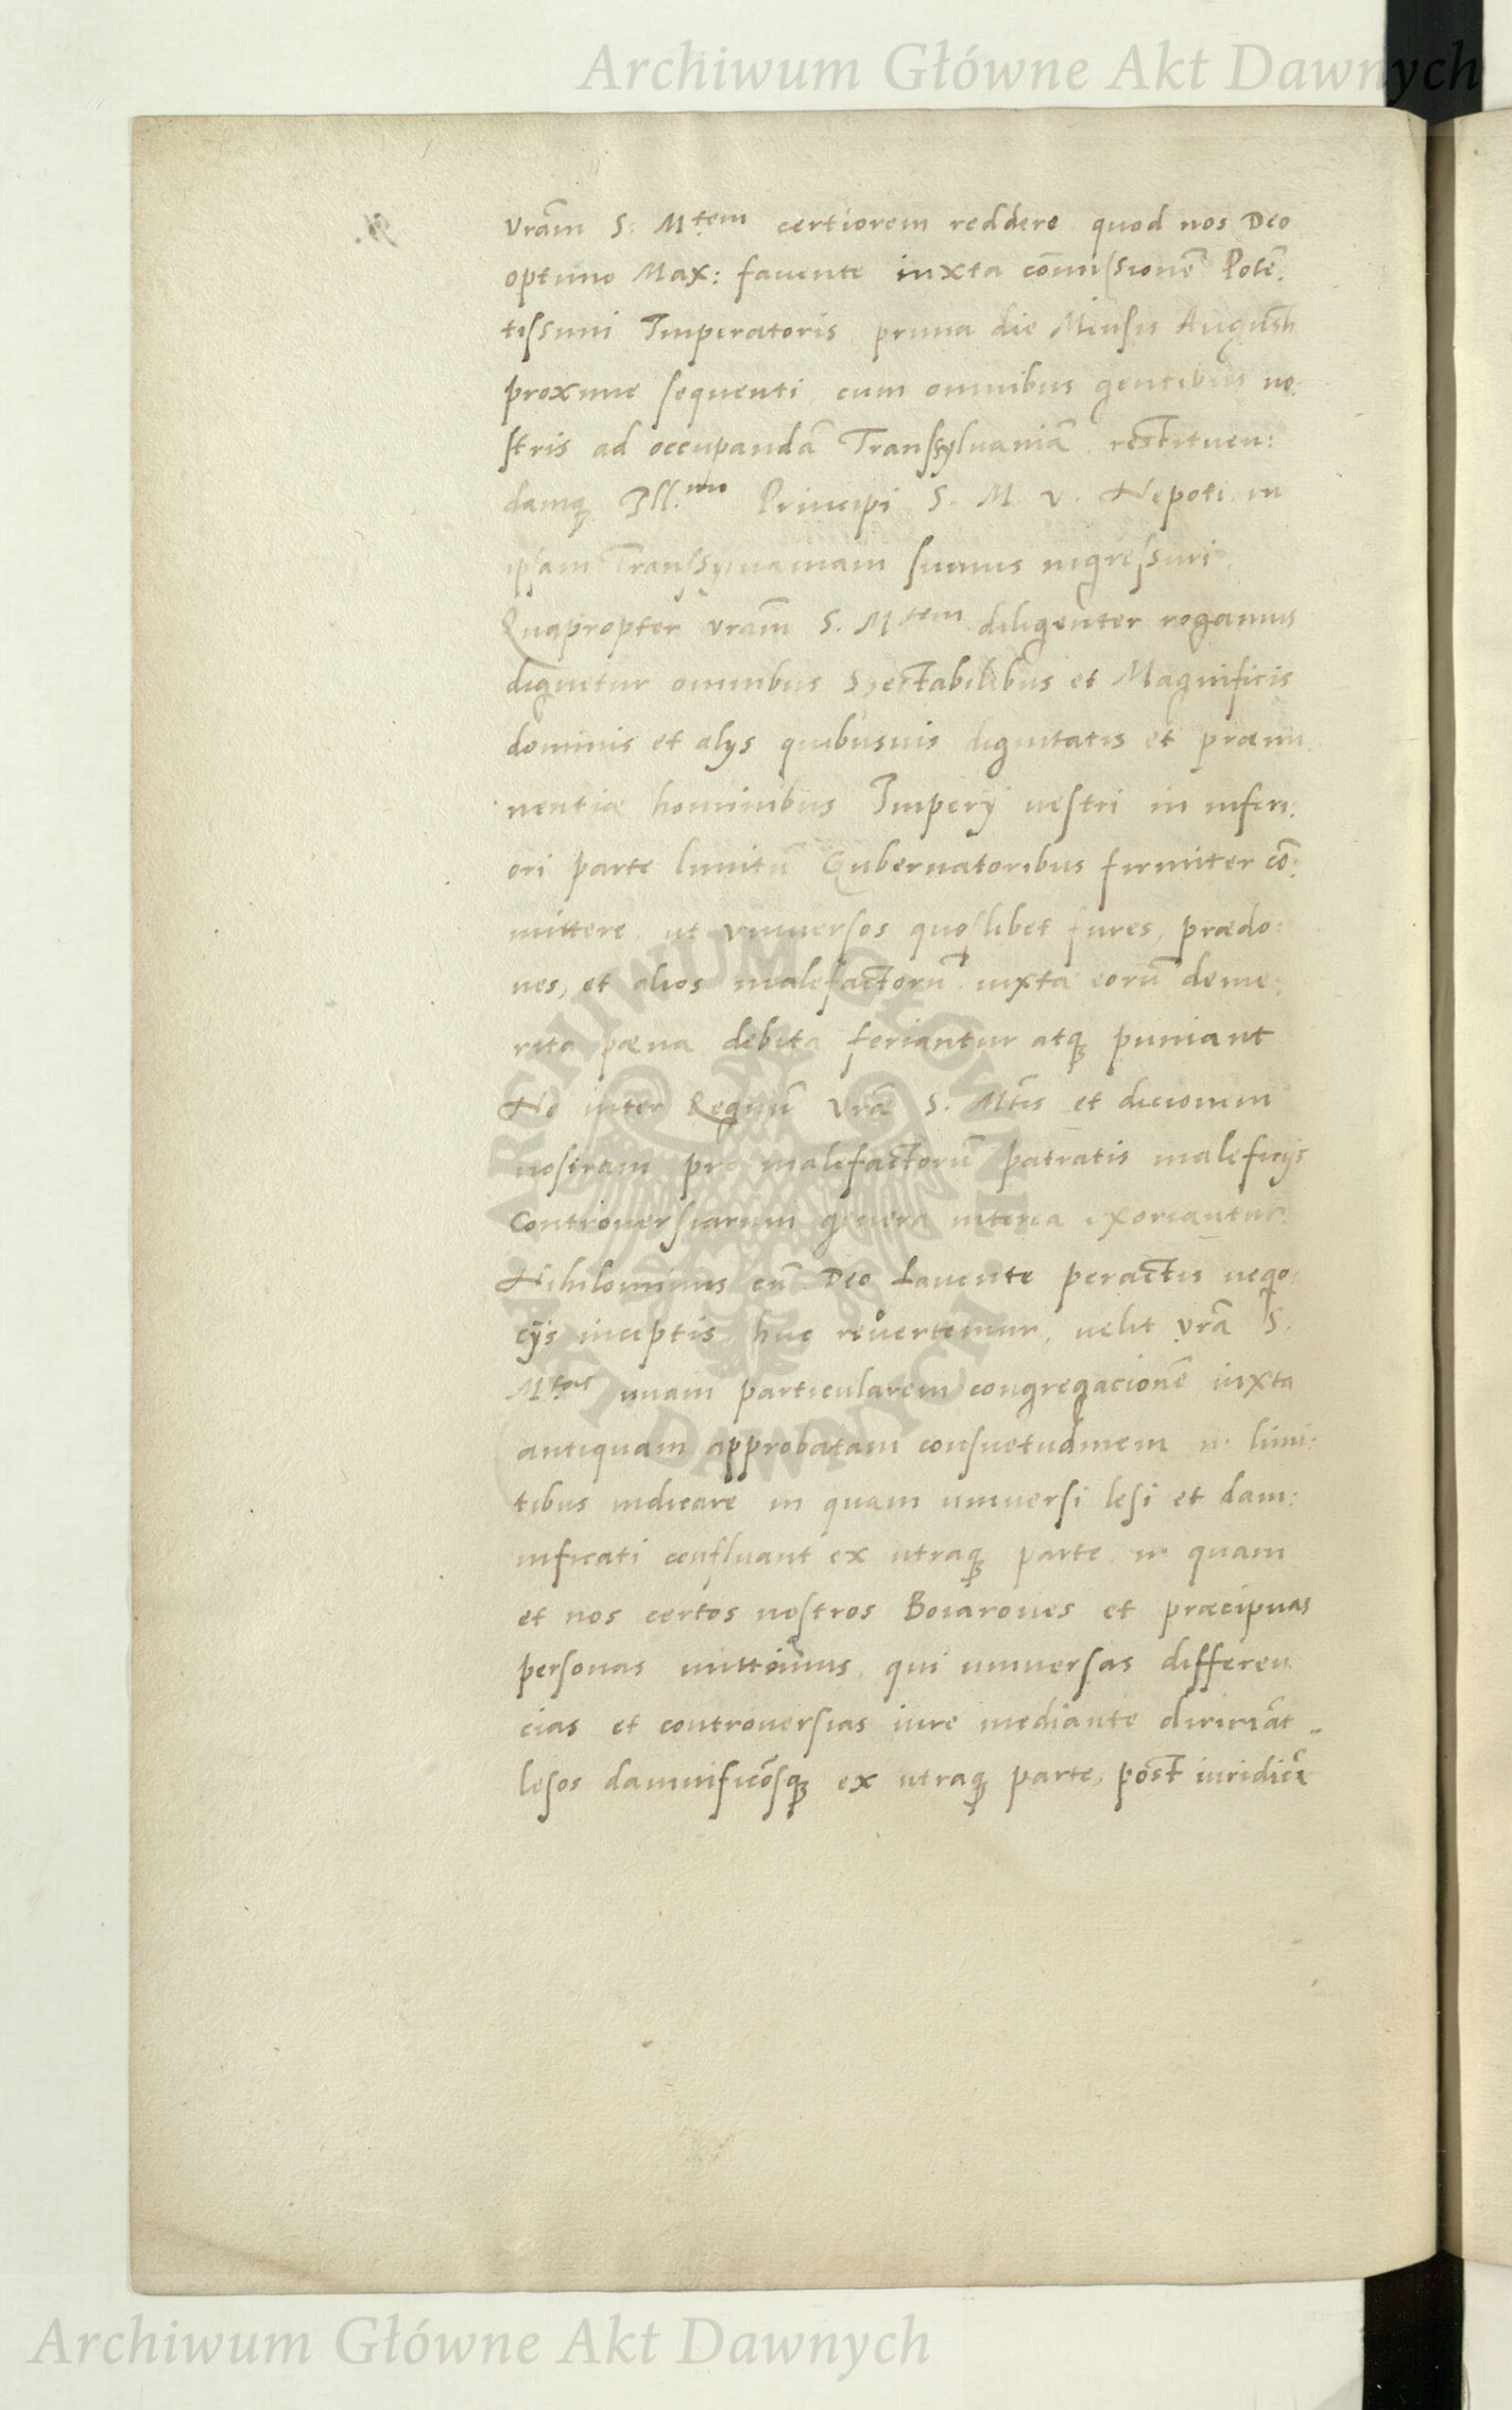 Archiwum Główne Akt Dawnych
Vrãm S: M^tem certiorem reddere quod nos Deo
optimo Max: favente iuxta cõmissionẽ Potẽ:
tissimi Imperatoris prima die Mensis Augusti
proxime sequenti cum omnibus gentibus no:
stris ad occupandã Transsyluaniã restituen:
damq; Ill.^mo Principi S. M. V. Nepoti in
ipsam Transsyluaniam sumus ingressuri.
Quapropter vrãm S. M^tem diligenter rogamus
dignetur omnibus Spectabilibus et Magnificis
dominis et alys quibusuis dignitatis et præmi:
nentiæ hominibus Impery vestri in inferi:
ori parte limitũ Gubernatoribus firmiter cõ:
mittere, ut vniuersos quoslibet fures, prædo:
nes, et alios malefactorũ iuxta eorũ deme:
rita pæna debita feriantur atq; puniant
Ne inter Regnũ Vræ S. Mtis et dicionem
nostram pro malefactorũ patratis maleficijs
Controuersiarum genera interea exoriantur:
Nihilominus cũ Deo fauente peractis nego:
cijs inceptis huc reuertemur, uelit vrã S.
M^tas unam particularem congregacionẽ iuxta
antiquam approbatam consuetudinem in limi:
tibus indicare in quam uniuersi lesi et dam:
nificati confluant ex utraq; parte in quam
et nos certos nostros Boiarones et præcipuas
personas mittimus, qui uniuersas differen
cias et controuersias iure mediante diririãt
lesos damnificõsq; ex utraq; parte, post iuridicã
ARCHIWUM GŁÓWNE AKT DAWNYCH
Archiwum Główne Akt Dawnych